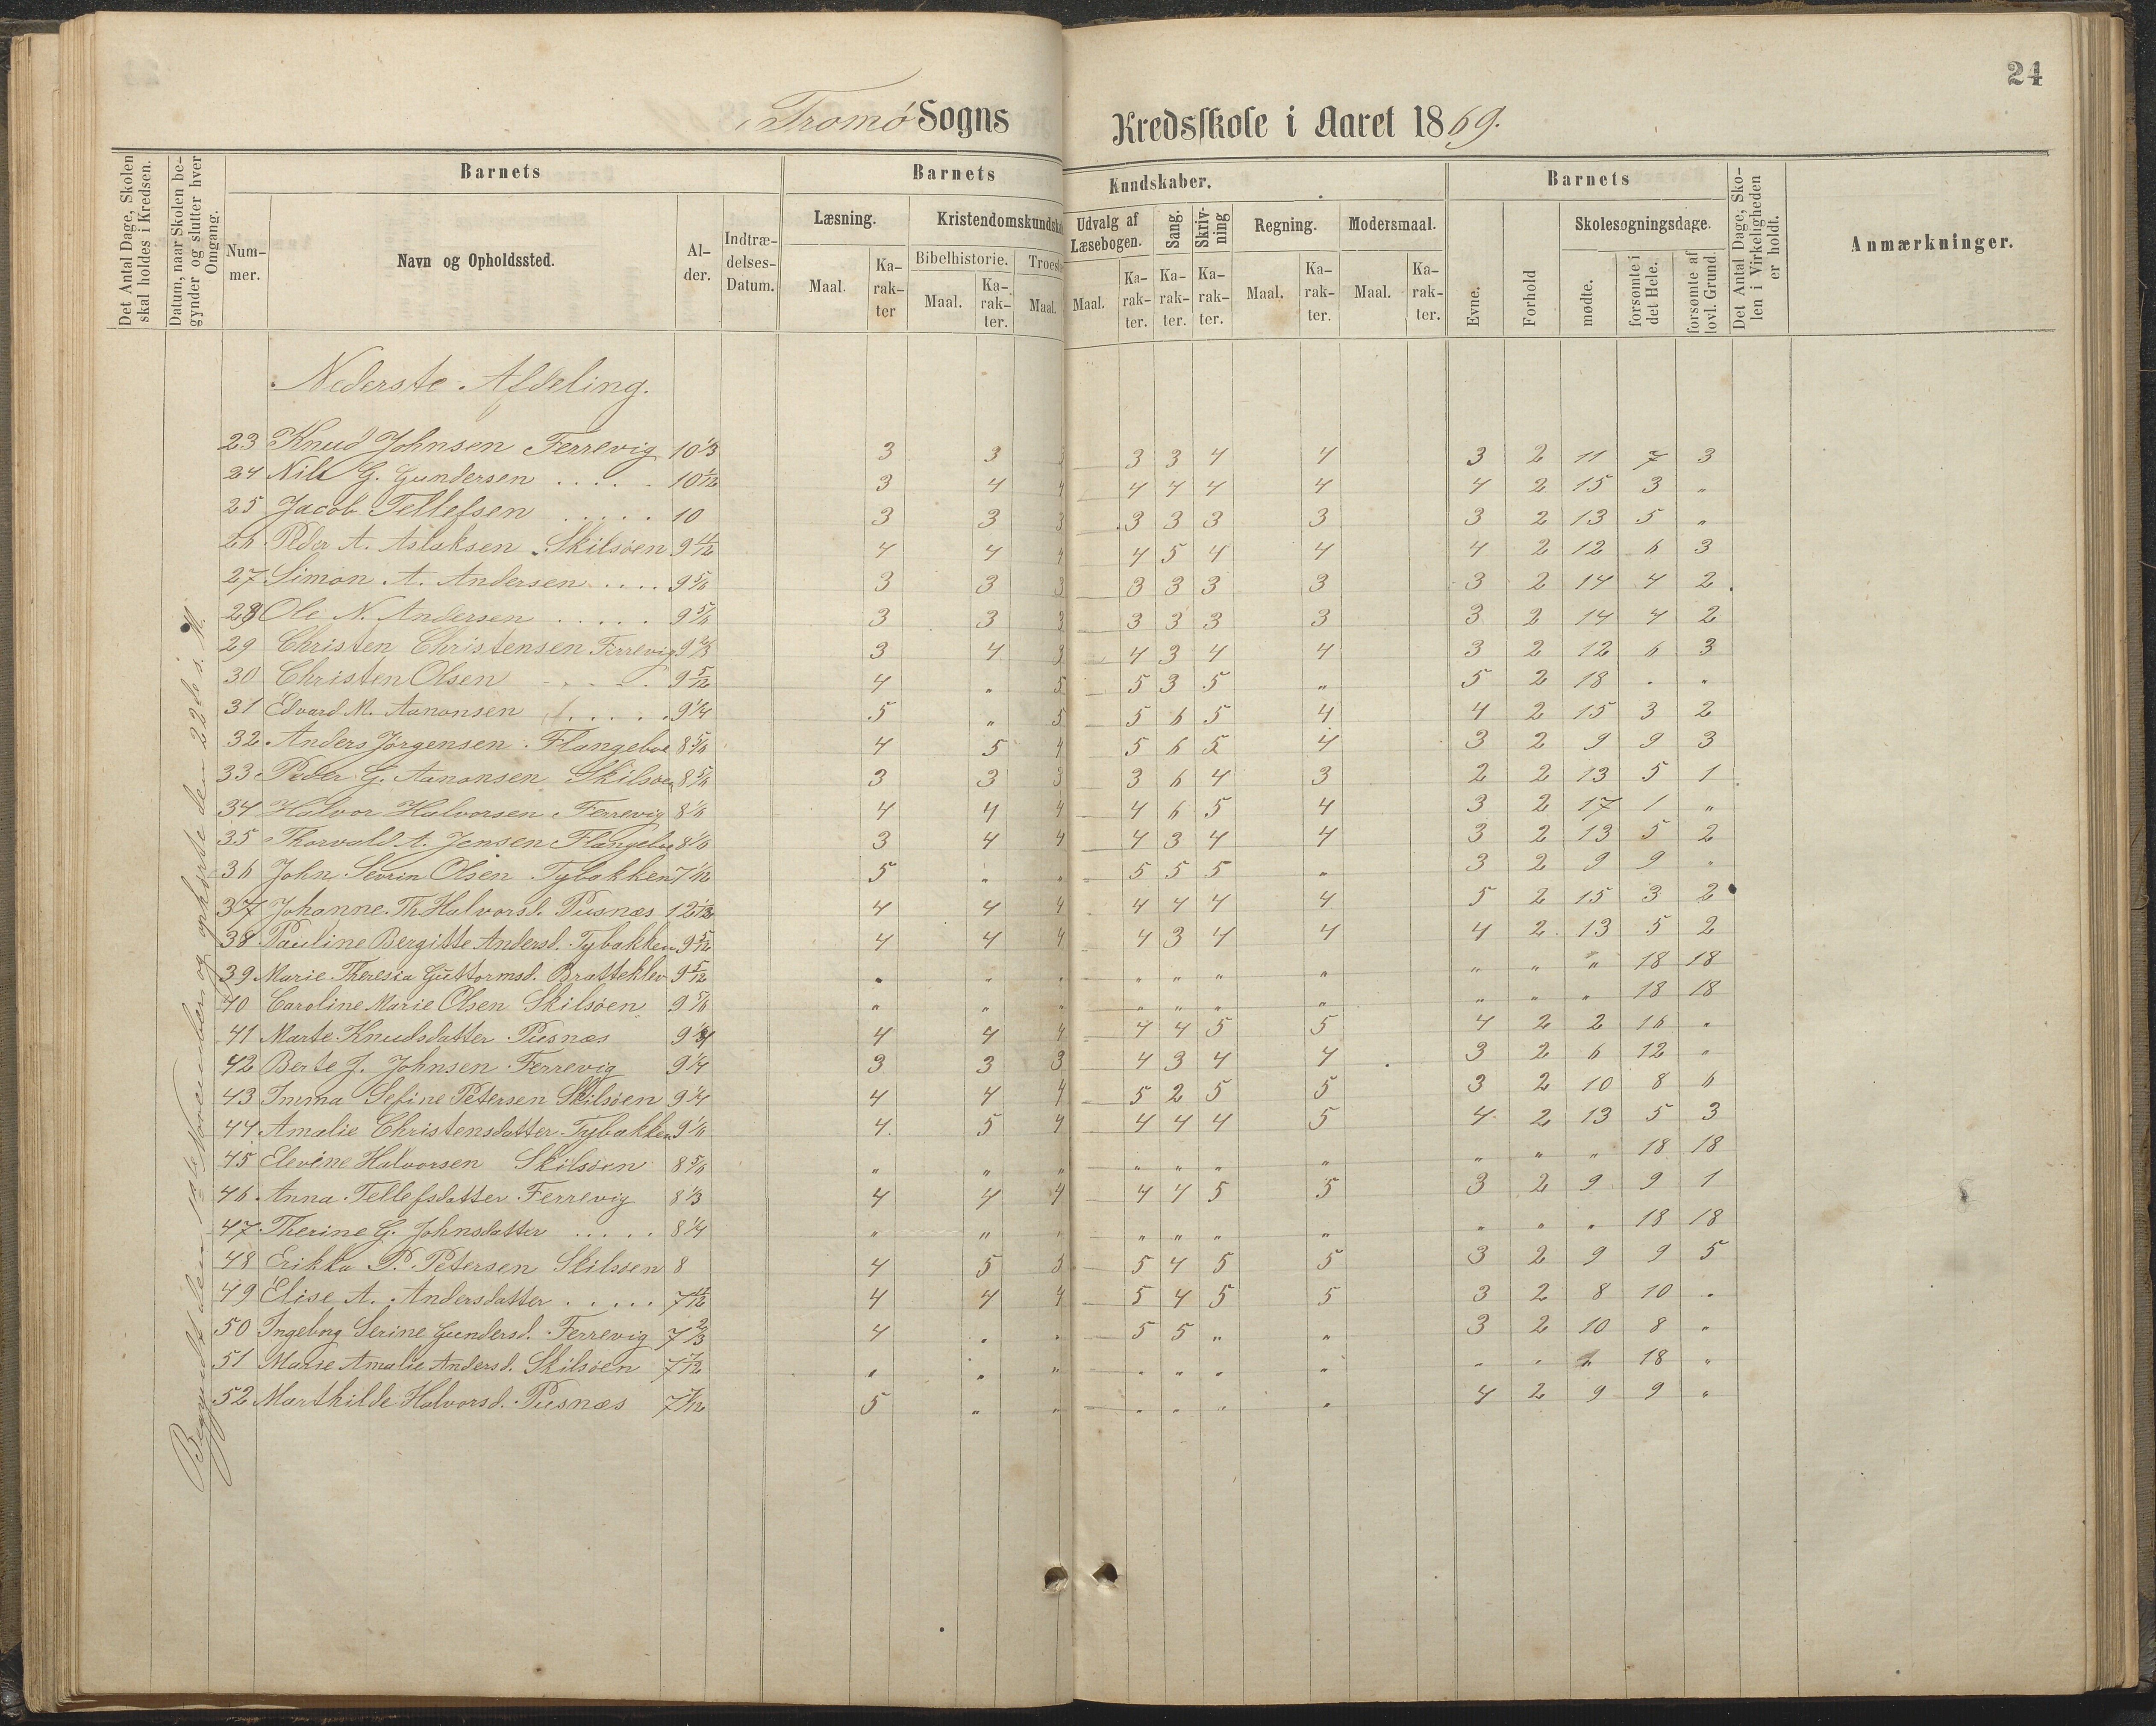 24
Tromø Sogns Kredsskole i Aaret 1869.
Det Antal Dage, Skolen skal holdes i Kredsen.
Datum, naar Skolen begynder og slutter hver Omgang.
Barnets
Nummer.
Navn og Opholdssted.
Alder.
Indtrædelses-Datum.
Barnets Kundskaber.
Læsning.
Maal.
Karakter
Kristendomskundska
Bibelhistorie.
Maal.
Karakter.
Troes
Maal.
Udvalg af Læsebogen.
Maal.
Karakter.
Sang.
Karakter.
Skrivning
Karakter.
Regning.
Maal.
Karakter.
Modersmaal.
Maal.
Karakter.
Barnets
Evne.
Forhold
Skolesøgningsdage.
mødte.
forsømte i det Hele.
forsømte af lovl. Grund.
Det Antal Dage, Skolen i Virkeligheden er holdt.
Anmærkninger.
Begyndt den 1ste November og ophørte den 22de s. M.
Nederste Afdeling.
23 Knud Johnsen Ferrevig 10 1/3 3 3 3 3 3 4 4 3 2 11 7 3
24 Nils G. Gundersen . . . . . 10 1/12 3 4 4 4 4 4 4 4 2 15 3 "
25 Jacob Tellefsen . . . . . 10 3 3 3 3 3 3 3 3 2 13 5 "
26 Peder A. Aslaksen Skilsøen 9 11/12 4 4 4 4 5 4 4 4 2 12 6 3
27 Simon A. Andersen . . . . 9 5/6 3 3 3 3 3 3 3 3 2 14 4 2
28 Ole N. Andersen . . . . . 9 5/6 3 3 3 3 3 3 3 3 2 14 4 2
29 Christen Christensen Ferrevig 9 2/3 3 4 3 4 3 4 4 3 2 12 6 3
30 Christen Olsen . . . . 9 5/12 4 " 5 5 3 5 " 5 2 18 . "
31 Edvard M. Aanonsen . . . . . 9 1/4 5 " 5 5 6 5 4 4 2 15 3 2
32 Anders Jørgensen Flangeboe 8 5/6 4 5 4 5 6 5 4 3 2 9 9 3
33 Peder G. Aanonsen Skilsøen 8 5/6 3 3 3 3 6 4 3 2 2 13 5 1
34 Halvor Halvorsen Ferrevig 8 1/6 4 4 4 4 6 5 4 3 2 17 1 "
35 Thorvald A. Jensen Flangeboe 8 1/6 3 4 4 4 3 4 4 3 2 13 5 2
36 John Sevrin Olsen Tybakken 7 1/12 5 " " 5 5 5 " 3 2 9 9 "
37 Johanne Th. Halvorsd. Pusnæs 12 4 4 4 4 4 4 4 5 2 15 3 2
38 Pauline Bergitte Andersd. Tybakken 9 5/12 4 4 4 4 3 4 4 4 2 13 5 2
39 Marie Theresia Guttormsd. Bratteklev 9 5/12 " " " " " " " " " " 18 18
40 Caroline Marie Olsen Skilsøen 9 5/6 " " " " " " " " " " 18 18
41 Marte Knudsdatter Pusnæs 9 4 4 4 4 4 5 5 4 2 2 16 "
42 Berte J. Johnsen Ferrevig 9 1/4 3 3 3 4 3 4 4 3 2 6 12 "
43 Imma Sefine Petersen Skilsøen 9 1/4 4 4 4 5 2 5 5 3 2 10 8 6
44 Amalie Christensdatter Tybakken 9 1/6 4 5 4 4 4 4 5 4 2 13 5 3
45 Elevine Halvorsen Skilsøen 8 5/6 " " " " " " " " " " 18 18
46 Anna Tellefsdatter Ferrevig 8 1/3 4 4 4 4 4 5 5 3 2 9 9 1
47 Therine G. Johnsdatter . . . . . 8 1/4 " " " " " " " " " " 18 18
48 Erikka P. Petersen Skilsøen 8 4 5 5 5 4 5 5 3 2 9 9 5
49 Elise A. Andersdatter . . . . . 7 11/12 4 4 4 5 4 5 5 3 2 8 10 "
50 Ingeborg Serine Gundersd. Ferrevig 7 2/3 4 " " 5 5 " " 3 2 10 8 "
51 Marie Amalie Andersd. Skilsøen 7 7/12 " " " " " " " " " " 18 "
52 Marthilde Halvorsd. Pusnæs 7 1/12 5 " " " " " " 4 2 9 9 "